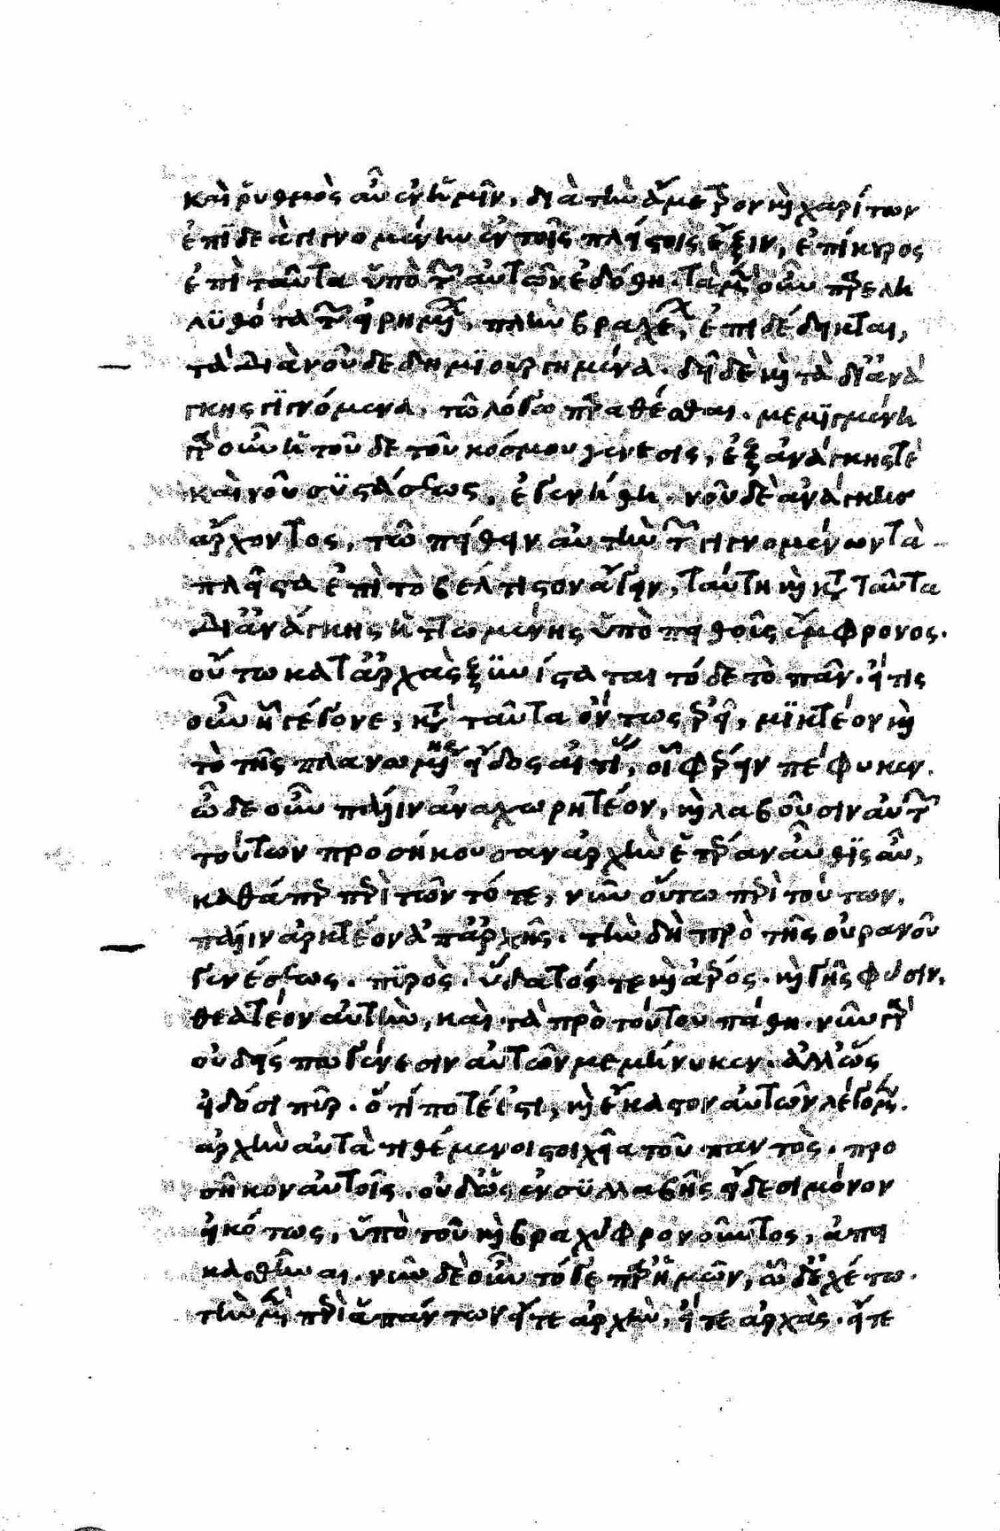 καὶ ῥυθμὸς αὖ ἐν ἡμῖν, διὰ τὴν ἄμετρον καὶ χαρίτων
ἐπιδεᾶ γιγνομένην ἐν τοῖς πλείστοις ἕξιν, ἐπίκυρος
ἐπὶ ταῦτα ὑπὸ τῶν αὐτῶν ἐδόθη. τὰ μὲν οὖν παρελη
λυθότα τῶν εἰρημένων, πλὴν βραχέων, ἐπιδέδεικται,
τὰ διὰ νοῦ δεδημιουργημένα. δεῖ δὲ καὶ τὰ δι' ἀνά
γκης γιγνόμενα, τῷ λόγῳ παραθέσθαι. μεμιγμένη
γὰρ οὖν ἡ τοῦδε τοῦ κόσμου γένεσις, ἐξ ἀνάγκης τὲ
καὶ νοῦ συστάσεως, ἐγενήθη. νοῦ δὲ ἀνάγκης
ἄρχοντος, τῷ πείθειν αὐτὴν τῶν γιγνομένων τὰ
πλεῖστα ἐπὶ τὸ βέλτιστον ἄγειν, ταύτῃ καὶ κατὰ ταῦτα
δι' ἀνάγκης ἡττωμένης ὑπὸ πειθοῦς ἔμφρονος.
οὕτω κατ' ἀρχὰς ξυνίστατο τόδε τὸ πᾶν. εἴ τις
οὖν ᾗ γέγονε, κατὰ ταῦτα ὄντως ἐρεῖ, μικτέον καὶ
τὸ τῆς πλανωμένης εἶδος αἰτίας, οἷ φέρειν πέφυκεν.
ὧδε οὖν πάλιν ἀναχωρητέον, καὶ λαβοῦσιν αὐτῶν
τούτων προσήκουσαν ἀρχὴν ἑτέραν αὖθις αὖ,
καθάπερ περὶ τῶν τότε, νῦν οὕτω περὶ τούτων,
πάλιν ἀρκτέον ἀπ' ἀρχῆς. τὴν δὴ πρὸ τῆς οὐρανοῦ
γενέσεως. πυρὸς. ὕδατός τε καὶ ἀέρος. καὶ γῆς φύσιν.
θεατέον αὐτὴν, καὶ τὰ πρὸ τούτου πάθη. νῦν γὰρ
οὐδείς πω γένεσιν αὐτῶν μεμήνυκεν. ἀλλ' ὡς
εἰδόσι πῦρ. ὅ τί ποτέ ἐστι, καὶ ἕκαστον αὐτῶν λέγομεν.
ἀρχὴν αὐτὰ τιθέμενοι στοιχεῖα τοῦ παντὸς. προ
σῆκον αὐτοῖς. οὐδ' ὡς ἐν συλλαβῆς εἴδεσι μόνον
εἰκότως, ὑπὸ τοῦ καὶ βραχὺ φρονοῦντος, ἀπει
κασθῆναι. νῦν δὲ οὖν τόγε παρ' ἡμῶν, ὧδ' ἐχέτω.
τὴν μὲν περὶ ἁπάντων εἴτε ἀρχὴν, εἴτε ἀρχὰς. εἴτε